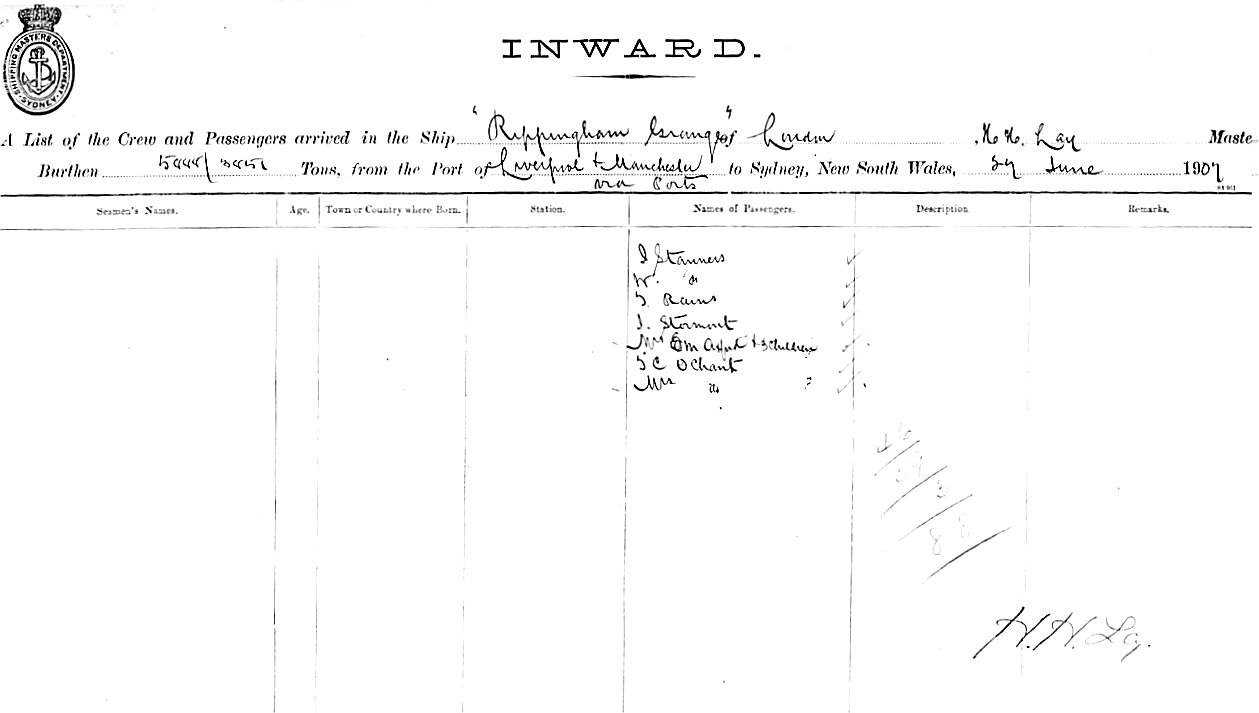 SHIPPING MASTERS DEPARTMENT
SYDNEY
INWARD.
A List of the Crew and Passengers arrived in the Ship "Rippingham Grange" of London, H. H. Lay Maste
Burthen Tons, from the Port of Liverpool & Manchester to Sydney, New South Wales, 29 June 1907
via Ports
Seamen's Names. Age. Town or Country where Born. Station. Names of Passengers. Description. Remarks.
I Stanners
W. "
T. Rains
J. Stormont
Mrs & 3 children
T C OChant
Mrs "
8 8
H. H. Lay.